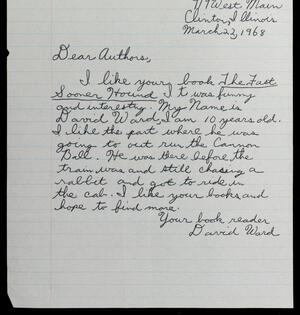 West Main
Clinton, Illinois
March 23, 1968
Dear Authors,
I like your book The Fast
Sooner Hound. It was funny
and interesty. My Name is
David Ward, I am 10 years old.
I like the part where he was
going to out run the Cannon
Ball. He was there before the
train was and still chasing a
rabbit and got to ride in
the cab. I like your books and
hope to find more.
Your book reader
David Ward